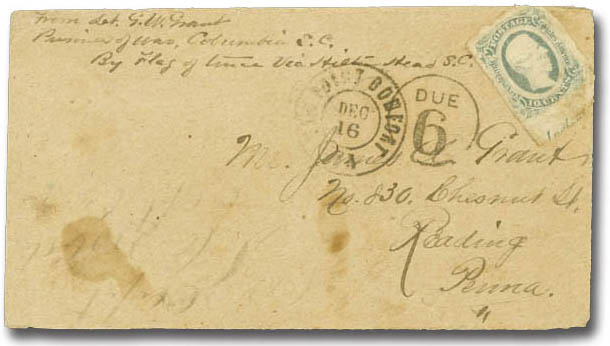 From Lt. G.W. Grant
Prisoner of War, Columbia S.C.
By Flag of truce Via Hilton Head S.C.
POSTAGE
TEN CENTS
POINT COMFORT
DEC
16
DUE
6
Mr. James Grant
No. 830. Chesnut St.
Reading
Penna.